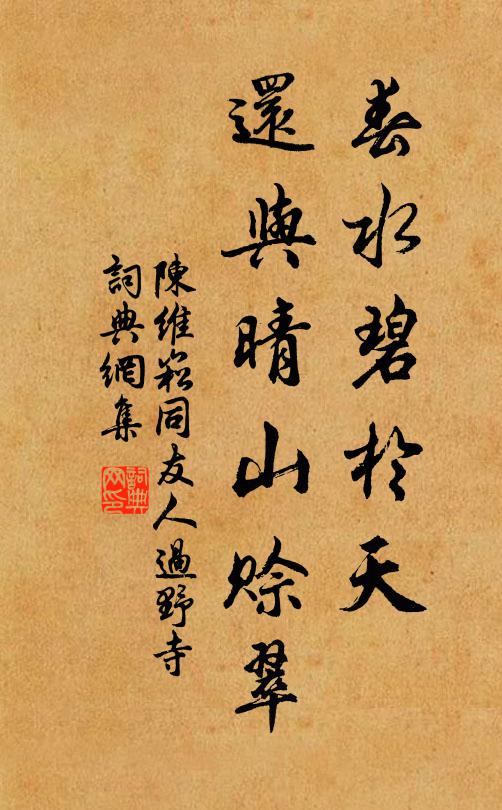 春水碧於天
還與晴山賒翠
陳維崧同友人過野寺
詞典網集
詞典網印